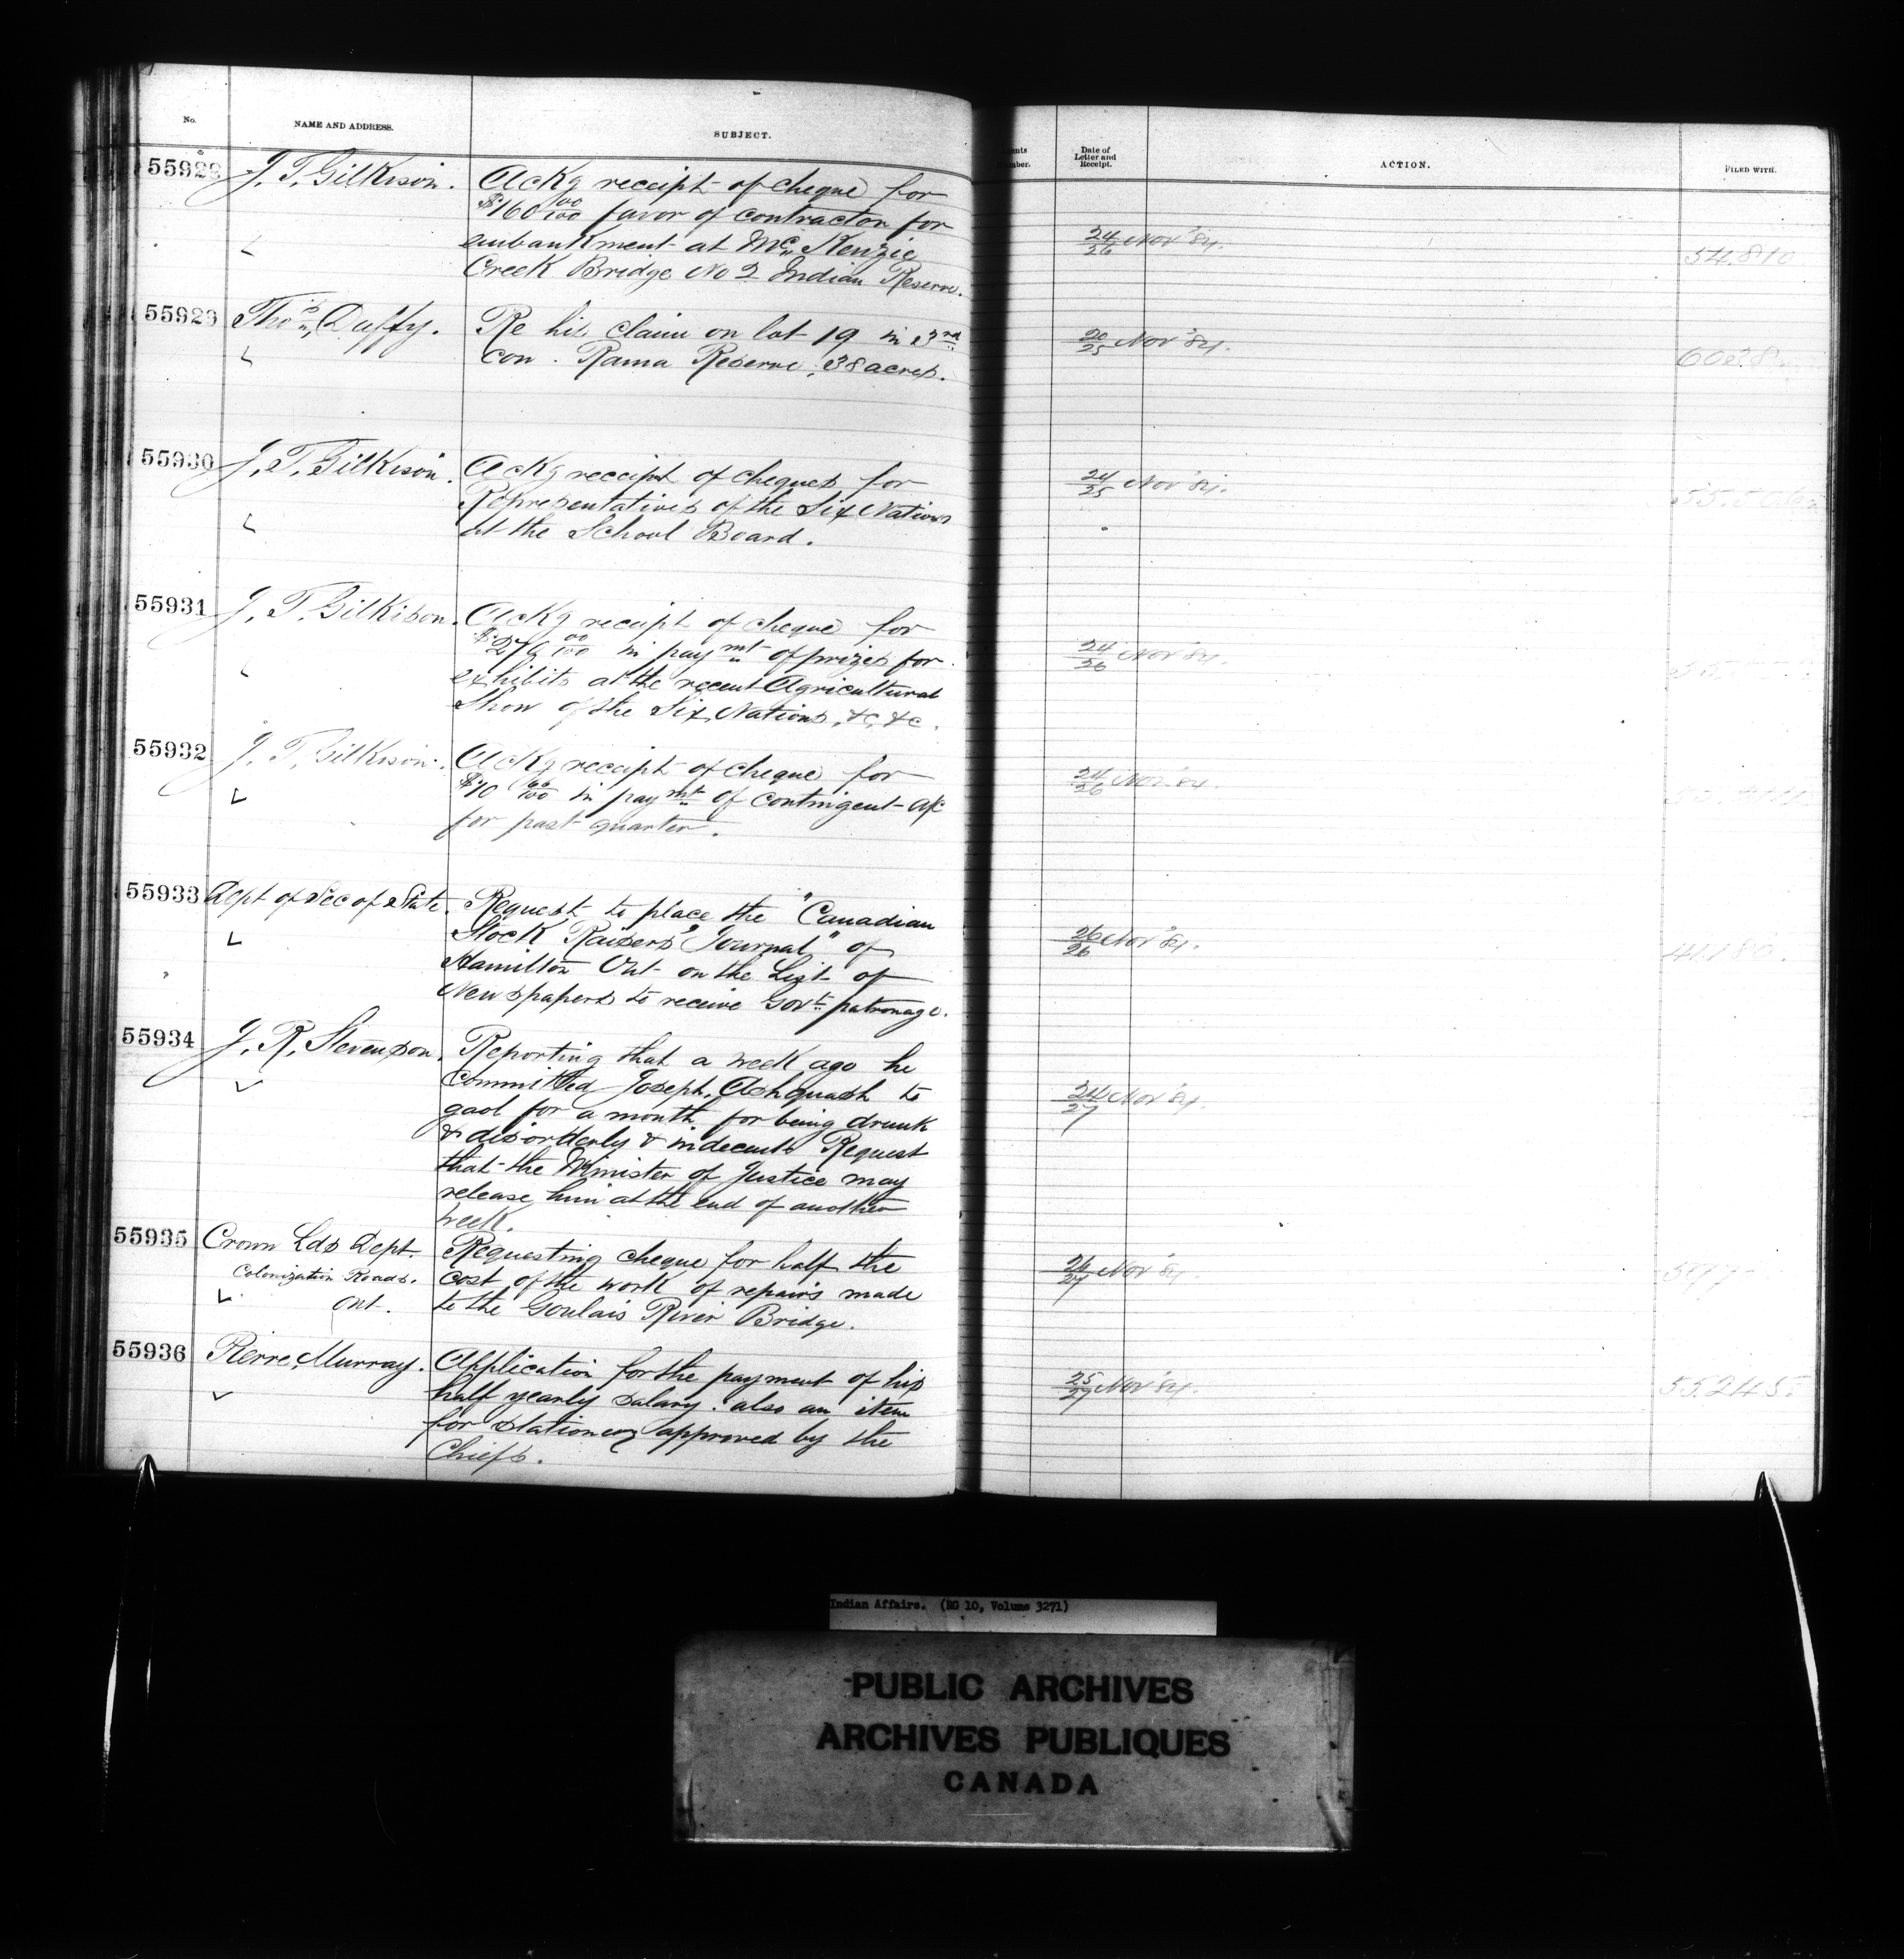 No.
NAME AND ADDRESS.
SUBJECT.
Date of
Letter and
Receipt.
ACTION.
FILED WITH.
55928
J. T. Gilkison.
Ackg receipt of cheque for
$160 00/100 favor of contractor for
embankment at McKenzie
Creek Bridge No 2 Indian Reserve.
24/26 Nov '84.
54.810
55929
Thos Duffy.
Re his claim on lot 19 in 3rd
Con. Rama Reserve, 38 acres.
20/25 Nov '84.
55930
J. T. Gilkison.
Ackg receipt of cheques for
Representatives of the Six Nations
at the School Board.
24/25 Nov '84.
55931
J. T. Gilkison.
Ackg receipt of cheque for
in paymt of prizes for
exhibits at the recent Agricultural
Show of the Six Nations, &c, &c.
24/26 Nov '84.
55932
J. T. Gilkison.
Ackg receipt of cheque for
in paymt of contingent a/c
for past quarter.
24/26 Nov '84.
55933
Dept of Sec of State.
Request to place the "Canadian
Stock Raisers' Journal" of
Hamilton Ont on the List of
Newspapers to receive Govt patronage.
26/26 Nov '84.
41.180.
55934
J. R. Stevenson.
Reporting that a week ago he
committed Joseph Ashquash to
gaol for a month for being drunk
& disorderly & indecent. Request
that the Minister of Justice may
release him at the end of another
week.
24/27 Nov '84.
55935
Crown Lds Dept.
Colonization Roads.
Ont.
Requesting cheque for half the
cost of the work of repairs made
to the Goulais River Bridge.
26/27 Nov '84.
55936
Pierre Murray.
Application for the payment of his
half yearly salary. also an item
for stationery approved by the
Chiefs.
25/27 Nov '84.
Indian Affairs. (RG 10, Volume 3271)
PUBLIC ARCHIVES
ARCHIVES PUBLIQUES
CANADA